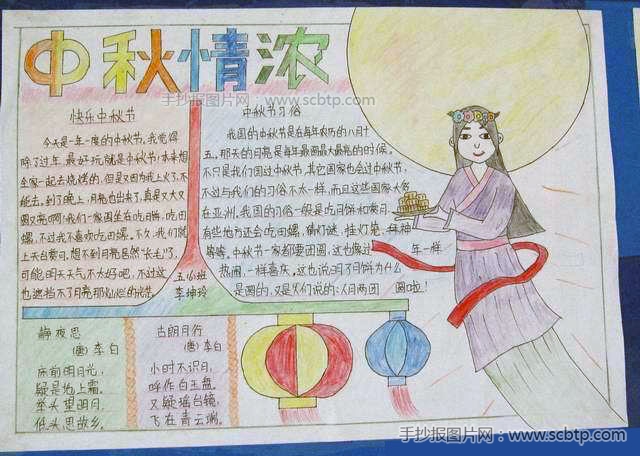 中秋情浓
手抄报图片网：www.scbtp.com
快乐中秋节
今天是一年一度的中秋节，我觉得
除了过年，最好玩就是中秋节！本来想
全家一起去烧烤的，但是又因为我上火了，不
能去。到了晚上，月亮也出来了，真是又大又
圆又亮啊！我们一家围坐在吃月饼，吃田
螺，不过我不喜欢吃田螺。不久，我们就
上天台索月。想不到月亮居然“长毛”了，
可能明天天气不太好吧，不过这
也遮挡不了月亮那灿烂的光芒。
五(6)班
李坤玲
中秋节习俗
我国的中秋节是在每年农历的八月十
五，那天的月亮是每年最圆最大最亮的时候，
不只是我们国过中秋节，其它国家也会过中秋节，
不过与我们的习俗不太一样，而且这些国家大多
在亚洲。我国的习俗一般是吃月饼和赏月。
有些地方还会吃田螺、猜灯谜、挂灯笼、拜神
等等。中秋节一家都要团圆，这也像过年一样
热闹，一样喜庆。这也说明了月饼为什么
是圆的，又是人们说的：人月两团圆啦！
静夜思
(唐)李白
床前明月光，
疑是地上霜。
举头望明月，
低头思故乡。
古朗月行
(唐)李白
小时不识月，
呼作白玉盘。
又疑瑶台镜，
飞在青云端。
手抄报图片网：www.scbtp.com